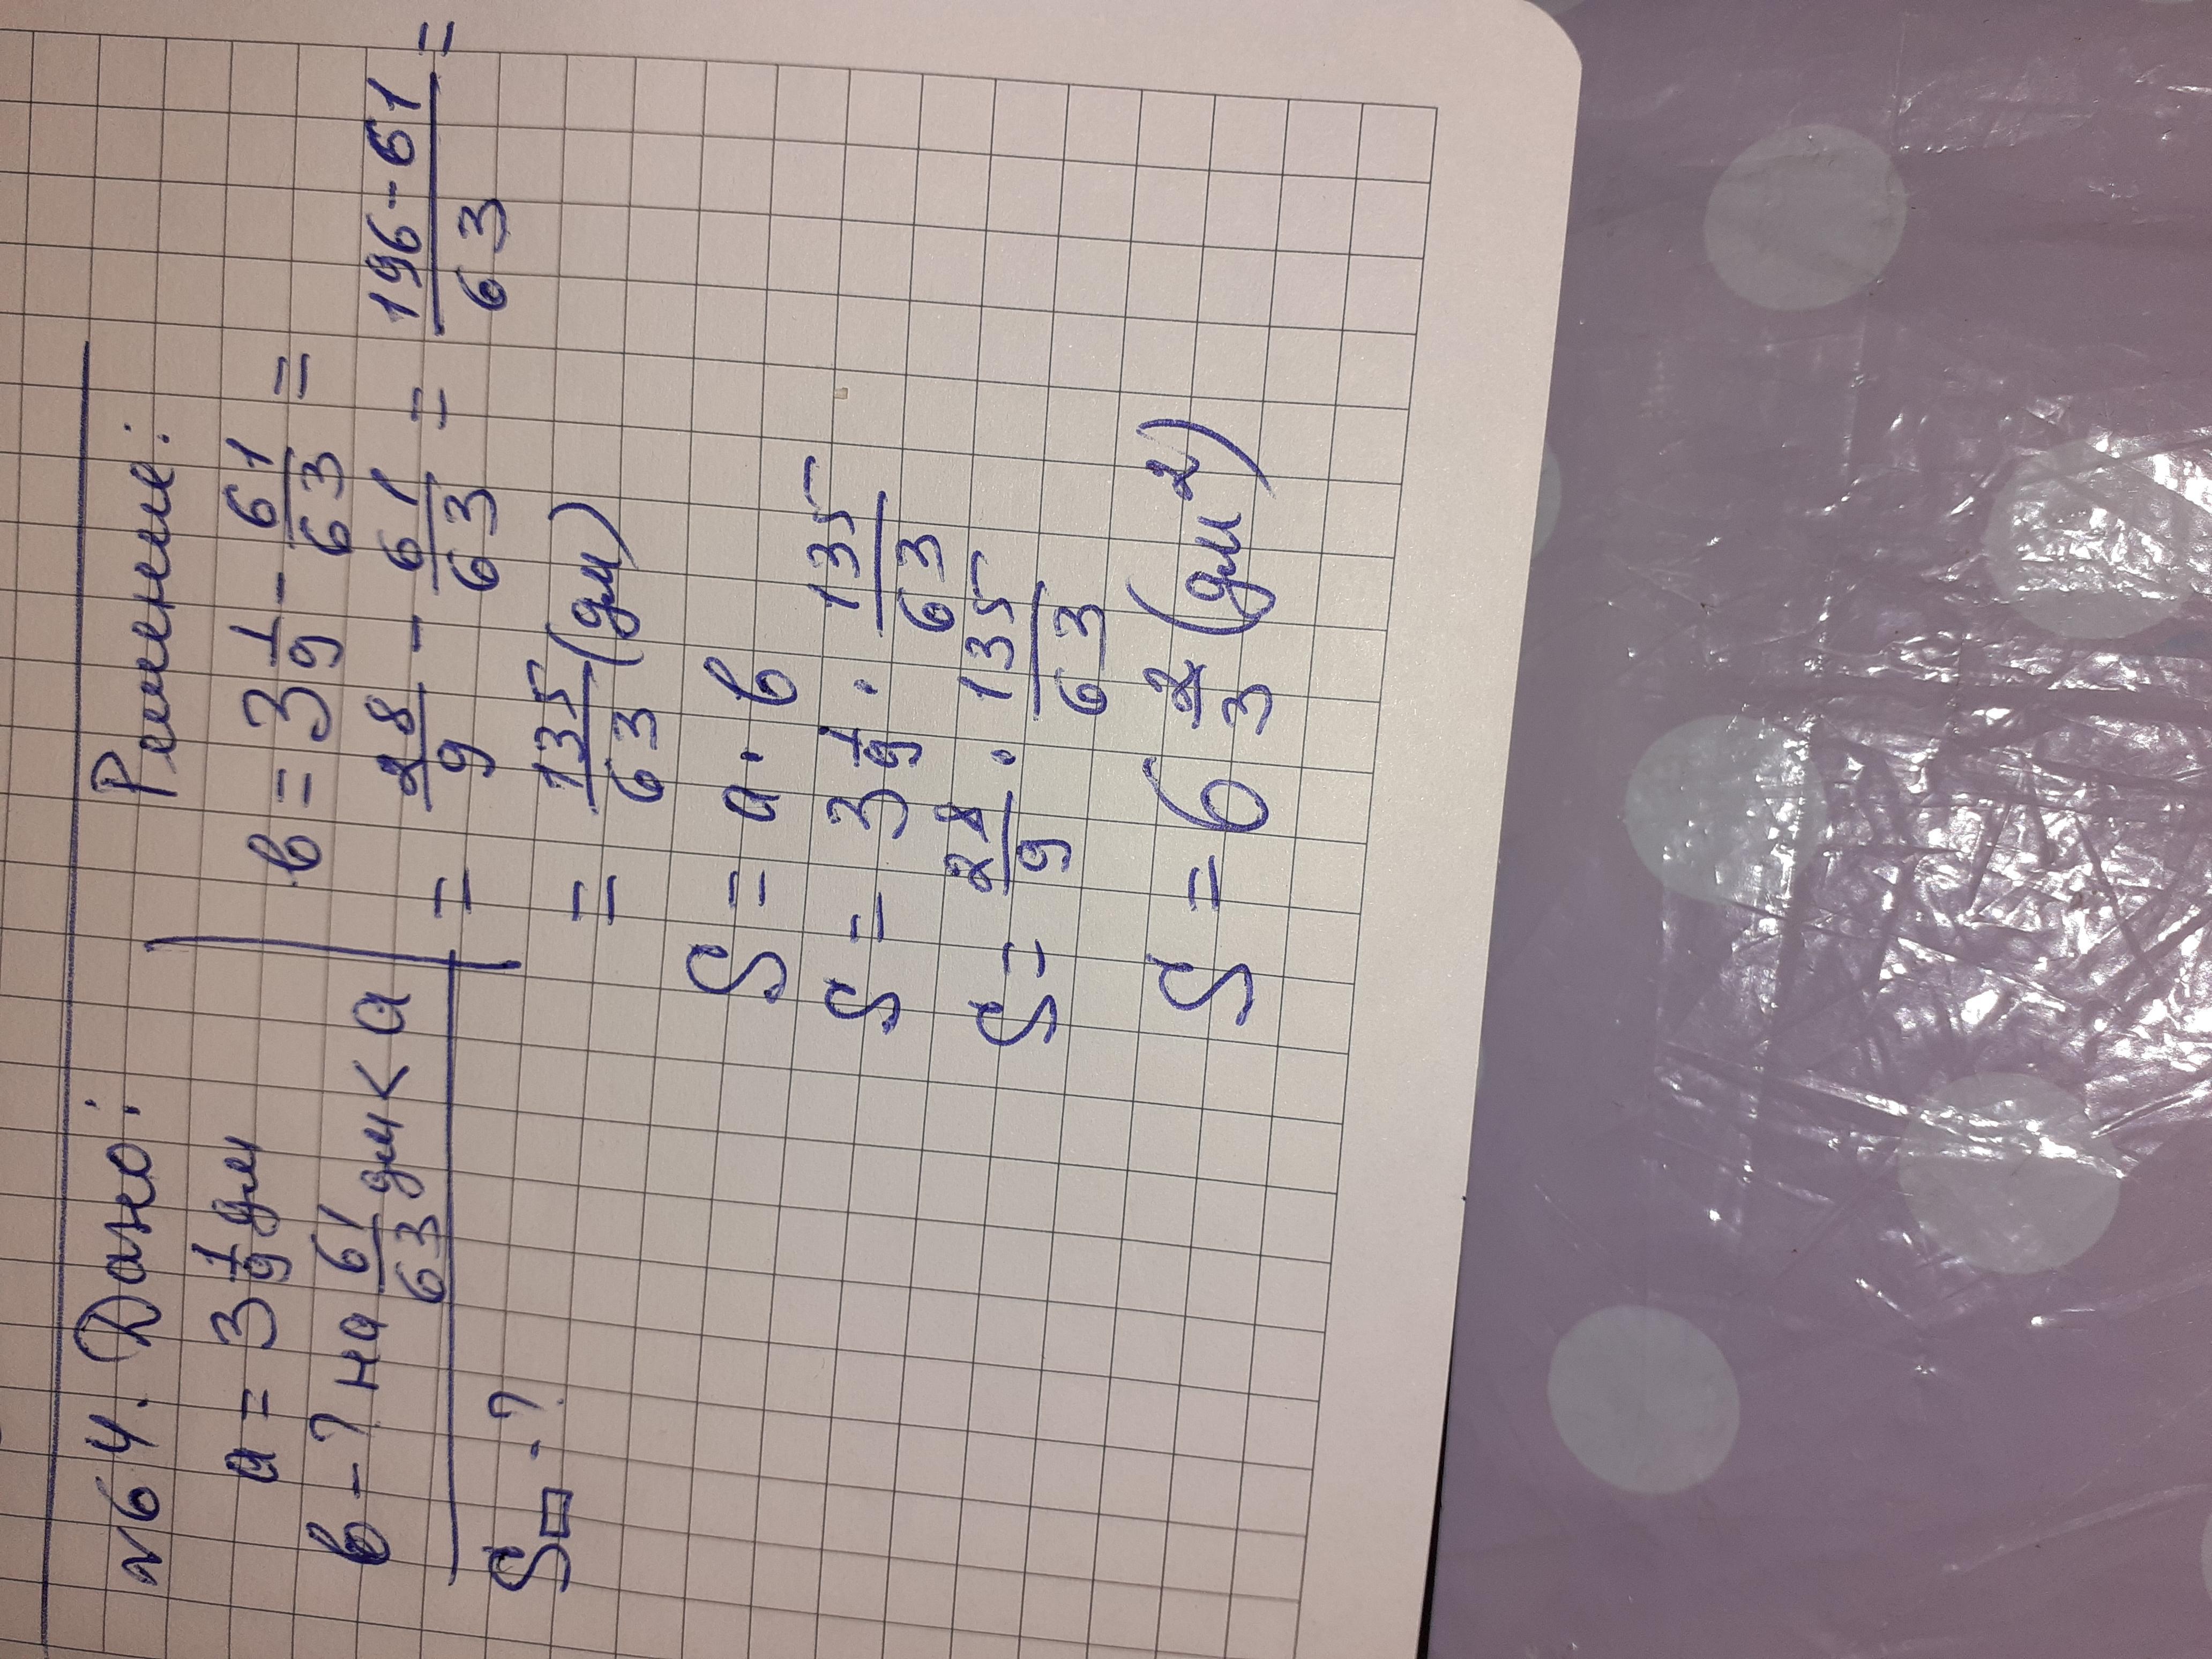 №64. Дано:
a = 3 1/9 дм
b - ? на 61/63 дм < a
S□ - ?
Решение:
b = 3 1/9 - 61/63 =
= 28/9 - 61/63 = (196-61)/63 =
= 135/63 (дм)
S = a · b
S = 3 1/9 · 135/63
S = 28/9 · 135/63
S = 6 2/3 (дм²)